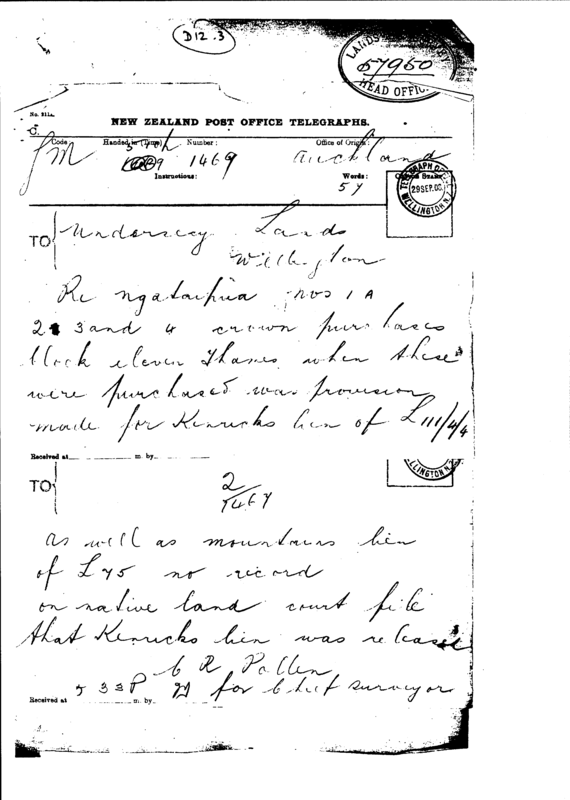 D12.3
LANDS
57950
HEAD OFFICE
No. 311a.
NEW ZEALAND POST OFFICE TELEGRAPHS.
Code Handed in (Time) Number: Office of Origin:
1469 Auckland
Instructions: Words:
57
TELEGRAPH
29 SEP.
WELLINGTON N.Z.
TO Undersecy Lands
Wellington
Re ngataipua nos 1A
2 3 and 4 crown purchases
block eleven Thames when these
were purchased was provision
made for Kenricks lien of £111/4/4
Received at m. by
WELLINGTON N.Z.
TO 2
1467
as well as mountains lien
of £75 no record
on native land court file
that Kenricks lien was released
C R Pollen
5 33 P for Chief surveyor
Received at m. by